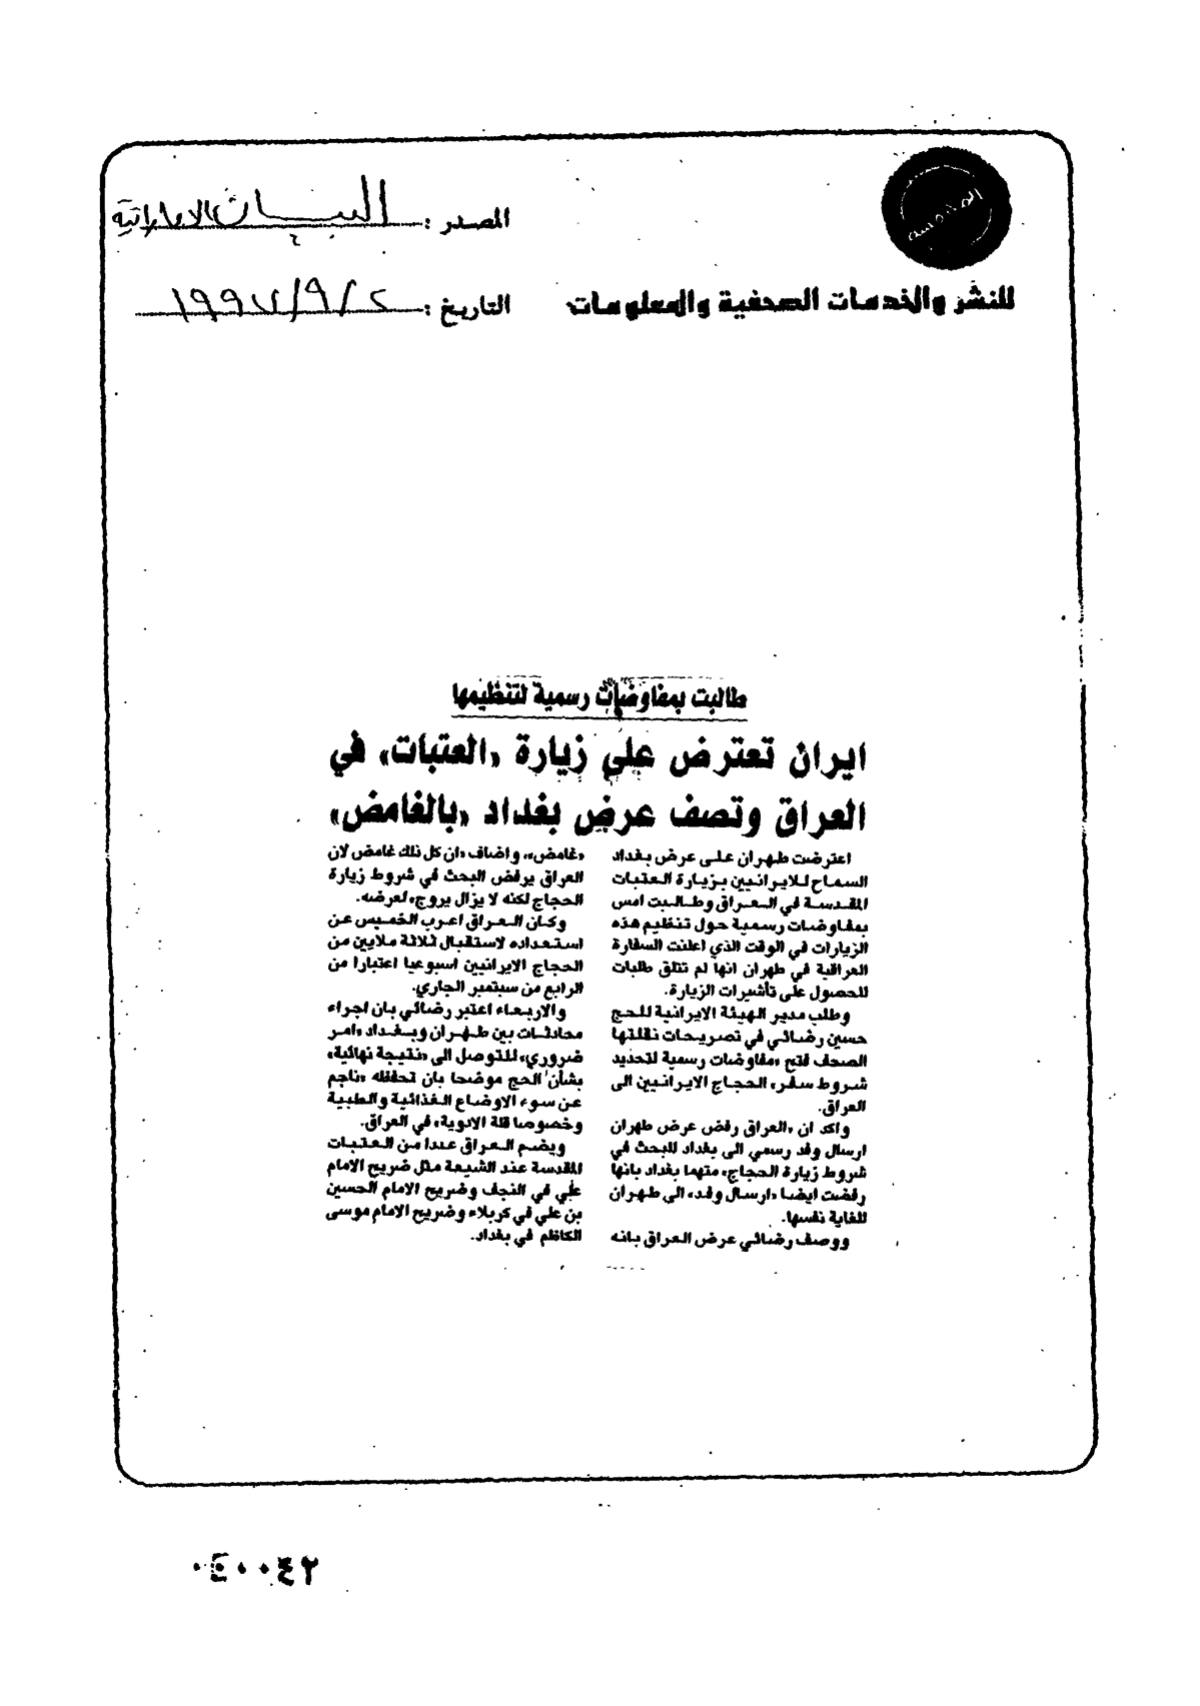 المصدر : البيان الاماراتية
للنشر والخدمات الصحفية والمعلومات
التاريخ : ٢ / ٩ / ١٩٩٧
طالبت بمفاوضات رسمية لتنظيمها
ايران تعترض على زيارة «العتبات» في
العراق وتصف عرض بغداد «بالغامض»
اعترضت طهران على عرض بغداد
السماح للايرانيين بزيارة العتبات
المقدسة في العراق وطالبت امس
بمفاوضات رسمية حول تنظيم هذه
الزيارات في الوقت الذي اعلنت السفارة
العراقية في طهران انها لم تتلق طلبات
للحصول على تأشيرات الزيارة.
وطلب مدير الهيئة الايرانية للحج
حسين رضائي في تصريحات نقلتها
الصحف فتح «مفاوضات رسمية لتحديد
شروط سفر» الحجاج الايرانيين الى
العراق.
واكد ان «العراق رفض عرض طهران
ارسال وفد رسمي الى بغداد للبحث في
شروط زيارة الحجاج» متهما بغداد بانها
رفضت ايضا «ارسال وفد» الى طهران
للغاية نفسها.
ووصف رضائي عرض العراق بانه
«غامض»، واضاف «ان كل ذلك غامض لان
العراق يرفض البحث في شروط زيارة
الحجاج لكنه لا يزال يروج» لعرضه.
وكان العراق اعرب الخميس عن
استعداده لاستقبال ثلاثة ملايين من
الحجاج الايرانيين اسبوعيا اعتبارا من
الرابع من سبتمبر الجاري.
والاربعاء اعتبر رضائي بان اجراء
محادثات بين طهران وبغداد «امر
ضروري» للتوصل الى «نتيجة نهائية»
بشأن الحج موضحا بان تحفظه «ناجم
عن سوء الاوضاع الغذائية والطبية
وخصوصا قلة الادوية» في العراق.
ويضم العراق عددا من العتبات
المقدسة عند الشيعة مثل ضريح الامام
علي في النجف وضريح الامام الحسين
بن علي في كربلاء وضريح الامام موسى
الكاظم في بغداد.